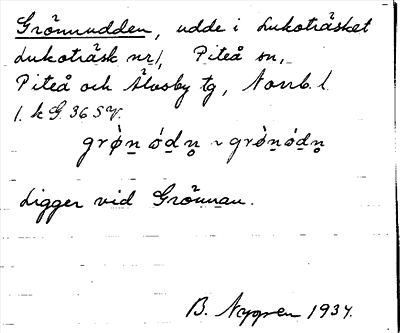 Grönnudden, udde i Lukoträsket
Lukoträsk nr 1, Piteå sn,
Piteå och Älvsby tg, Norrb. l.
1. k G. 36 SV.
grø̀n ó̱dn̥ ~ grø̀nó̱dn̥
Ligger vid Grönnan.
B. Nygren 1934.